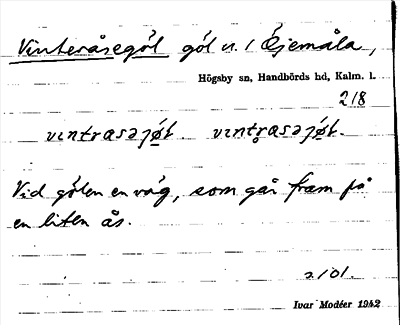 Vinteråsegöl göl n. / Öjemåla,
Högsby sn, Handbörds hd, Kalm. l.
218
vıntrasəjøt. vıntr̥asəjøt.
Vid gölen en väg, som går fram på
en liten ås.
2101.
Ivar Modéer 1942